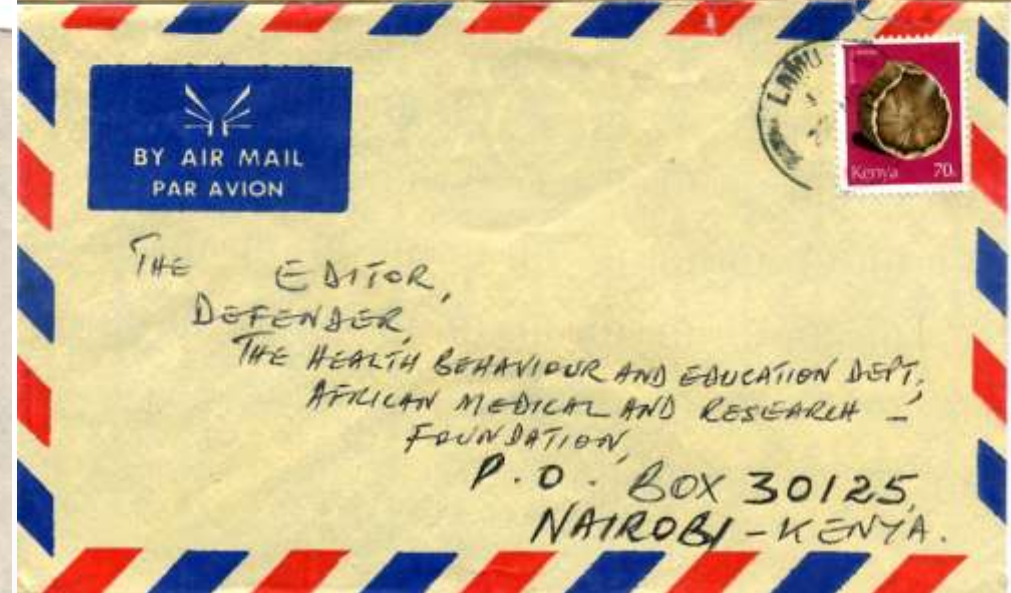 LAMU
Kenya 70c
BY AIR MAIL
PAR AVION
THE EDITOR,
DEFENDER,
THE HEALTH BEHAVIOUR AND EDUCATION DEPT,
AFRICAN MEDICAL AND RESEARCH –
FOUNDATION,
P.O. BOX 30125,
NAIROBI – KENYA.